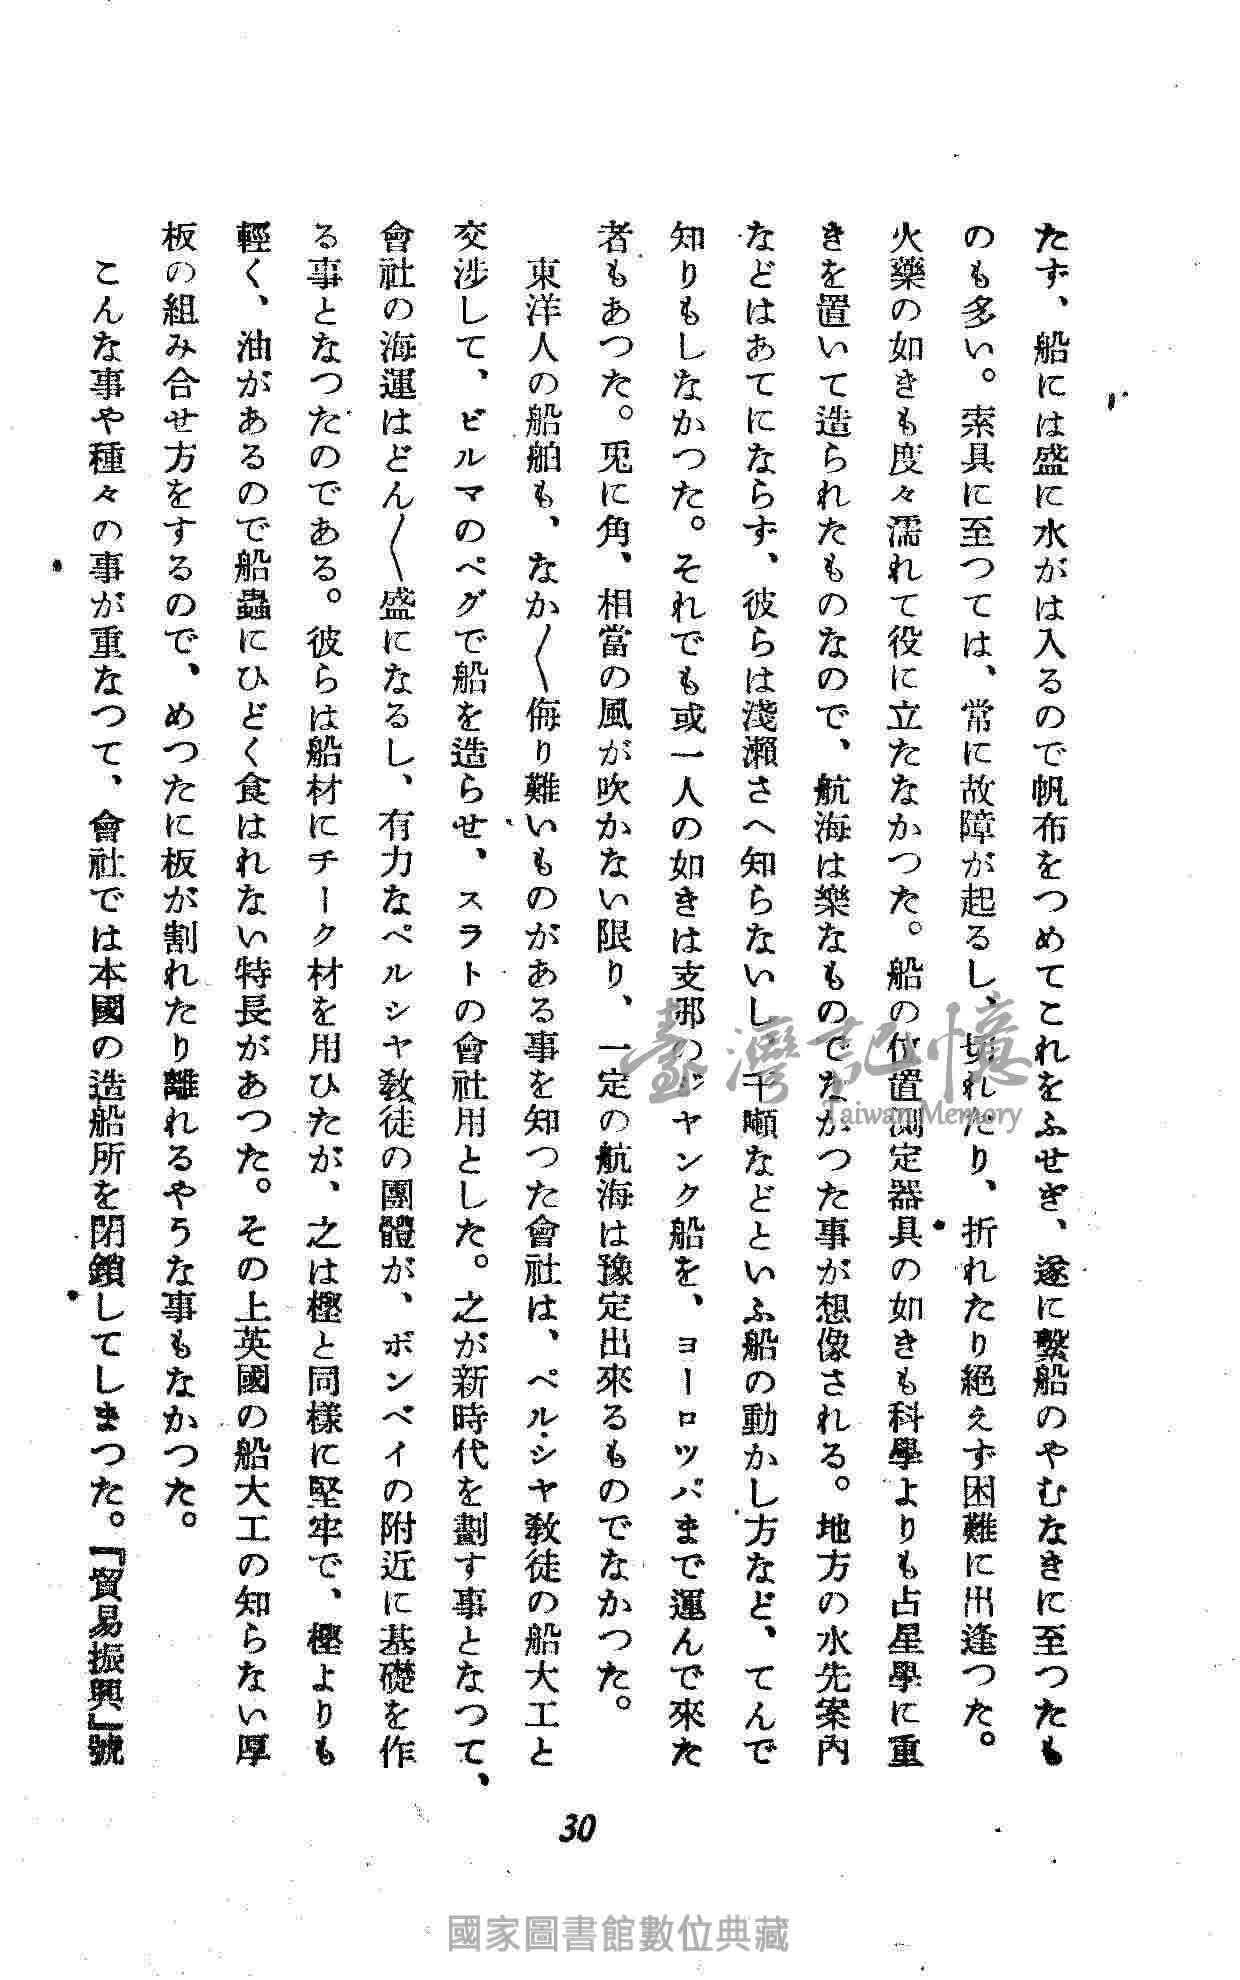 たず、船には盛に水がは入るので帆布をつめてこれをふせぎ、遂に繋船のやむなきに至つたも
のも多い。索具に至つては、常に故障が起るし、切れたり、折れたり絶えず困難に出逢つた。
火藥の如きも度々濡れて役に立たなかつた。船の位置測定器具の如きも科學よりも占星學に重
きを置いて造られたものなので、航海は樂なものでなかつた事が想像される。地方の水先案内
などはあてにならず、彼らは淺瀬さへ知らないし、千噸などといふ船の動かし方など、てんで
知りもしなかつた。それでも或一人の如きは支那のジヤンク船を、ヨーロツパまで運んで來た
者もあつた。兎に角、相當の風が吹かない限り、一定の航海は豫定出來るものでなかつた。
東洋人の船舶も、なか〱侮り難いものがある事を知つた會社は、ペルシヤ教徒の船大工と
交渉して、ビルマのペグで船を造らせ、スラトの會社用とした。之が新時代を劃す事となつて、
會社の海運はどん〱盛になるし、有力なペルシヤ教徒の團體が、ボンベイの附近に基礎を作
る事となつたのである。彼らは船材にチーク材を用ひたが、之は樫と同樣に堅牢で、樫よりも
輕く、油があるので船蟲にひどく食はれない特長があつた。その上英國の船大工の知らない厚
板の組み合せ方をするので、めつたに板が割れたり離れるやうな事もなかつた。
こんな事や種々の事が重なつて、會社では本國の造船所を閉鎖してしまつた。『貿易振興』號
30
臺灣記憶
Taiwan Memory
國家圖書館數位典藏